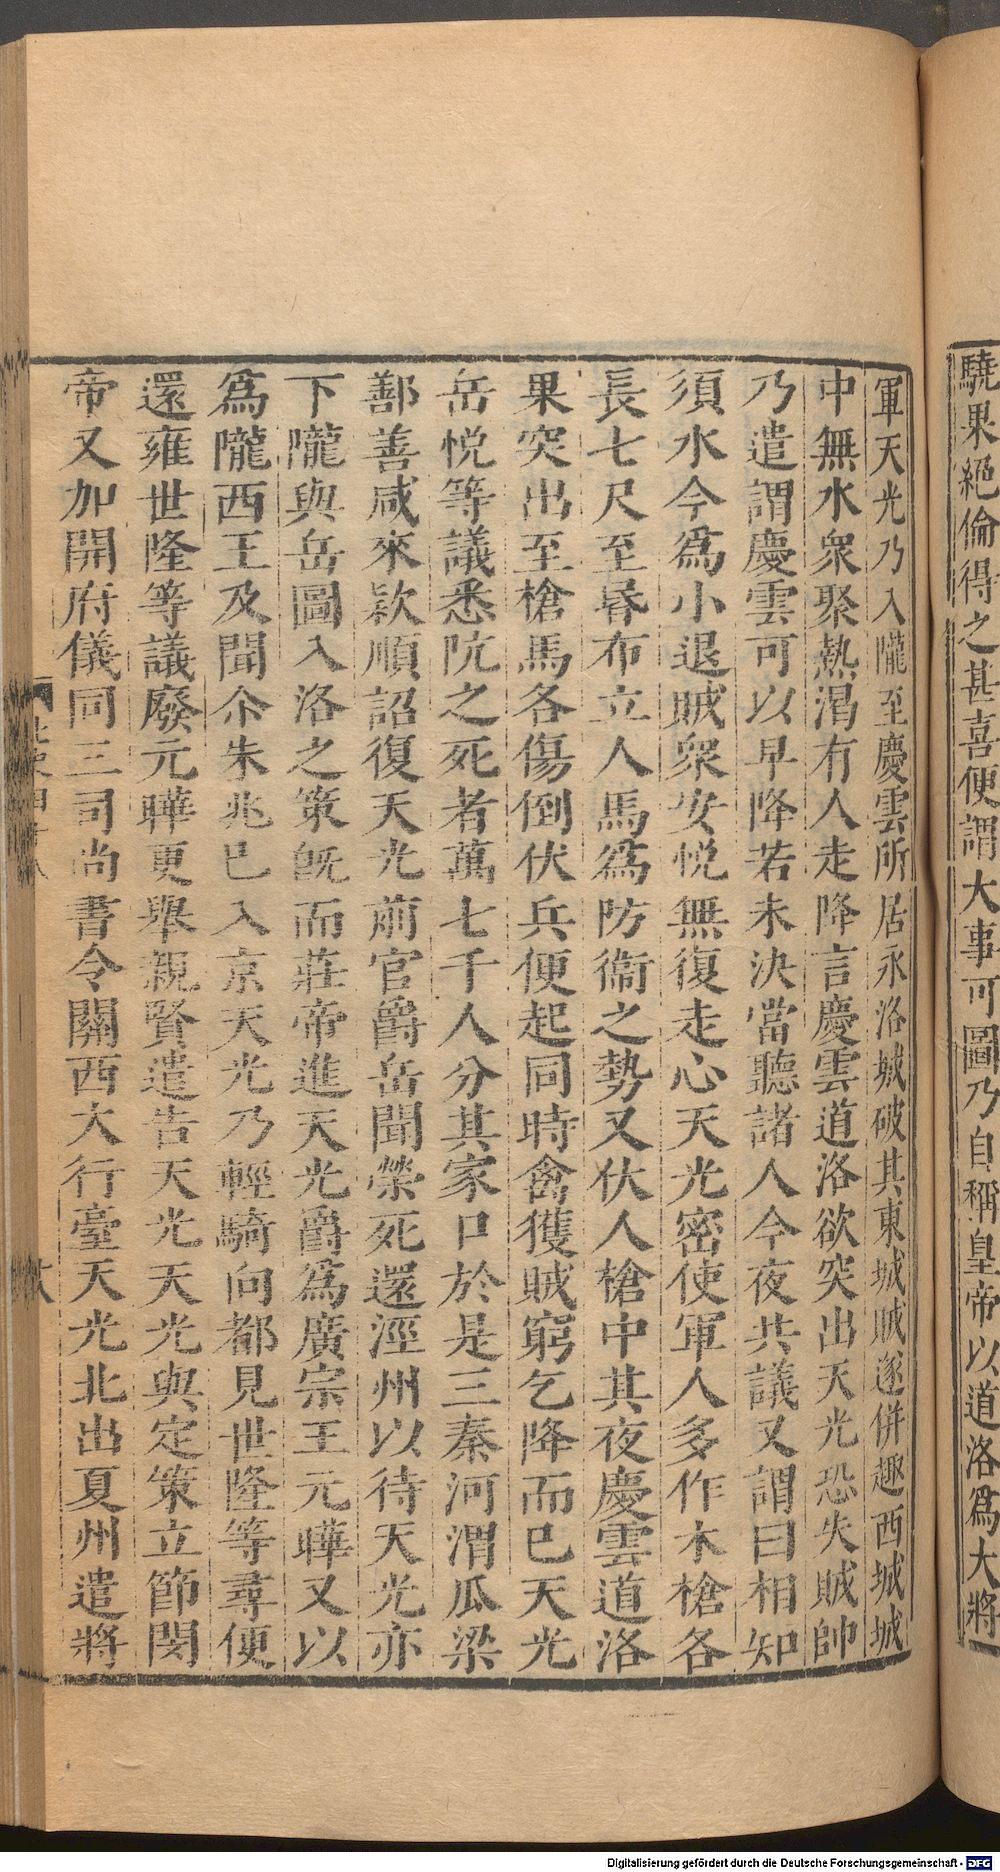 驍果絕倫得之甚喜便謂大事可圖乃自稱皇帝以道洛爲大將
軍天光乃入隴至慶雲所居永洛城破其東城賊遂併趣西城城
中無水衆聚熱渴有人走降言慶雲道洛欲突出天光恐失賊帥
乃遣謂慶雲可以早降若未決當聽諸人今夜共議又謂曰相知
須水今爲小退賊衆安悅無復走心天光密使軍人多作木槍各
長七尺至昏布立人馬爲防衞之勢又伏人槍中其夜慶雲道洛
果突出至槍馬各傷倒伏兵便起同時禽獲賊窮乞降而已天光
岳悅等議悉阬之死者萬七千人分其家口於是三秦河渭瓜梁
鄯善咸來款順詔復天光前官爵岳聞榮死還涇州以待天光亦
下隴與岳圖入洛之策旣而莊帝進天光爵爲廣宗王元曄又以
爲隴西王及聞尒朱兆已入京天光乃輕騎向都見世隆等尋便
還雍世隆等議廢元曄更舉親賢遣告天光天光與定策立節閔
帝又加開府儀同三司尚書令關西大行臺天光北出夏州遣將
北史四十八
Digitalisierung gefördert durch die Deutsche Forschungsgemeinschaft - DFG